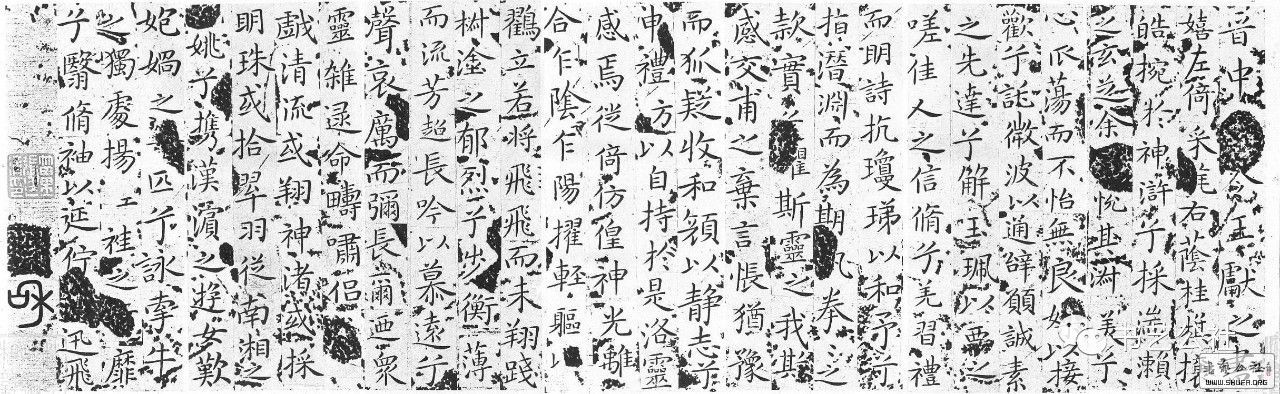 晋中令王獻之
嬉左倚采旄右蔭桂旗攘
皓捥於神滸兮採湍瀨
之玄芝余悅其淑美兮
心振蕩而不怡無良以接
歡兮託微波以通辭願誠素
之先達兮解玉珮以要之
嗟佳人之信脩兮羌習禮
而明詩抗瓊珶以和予兮
指潛淵而為期執拳之
款實懼斯靈之我欺
感交甫之棄言悵猶豫
而狐疑收和顏以静志兮
申禮防以自持於是洛靈
感焉徙倚仿偟神光離
合乍陰乍陽擢輕軀以
鶴立若將飛飛而未翔踐
椒塗之郁烈兮步衡薄
而流芳超長吟以慕遠兮
聲哀厲而彌長爾迺眾
靈雜遝命疇嘯侶
戲清流或翔神渚或採
明珠或拾翠羽從南湘之
姚兮攜漢濱之遊女歎
妑媧之匹兮詠牽牛
之獨處揚袿之靡
兮翳脩袖以延佇迅飛
WWW.SHUFA.ORG